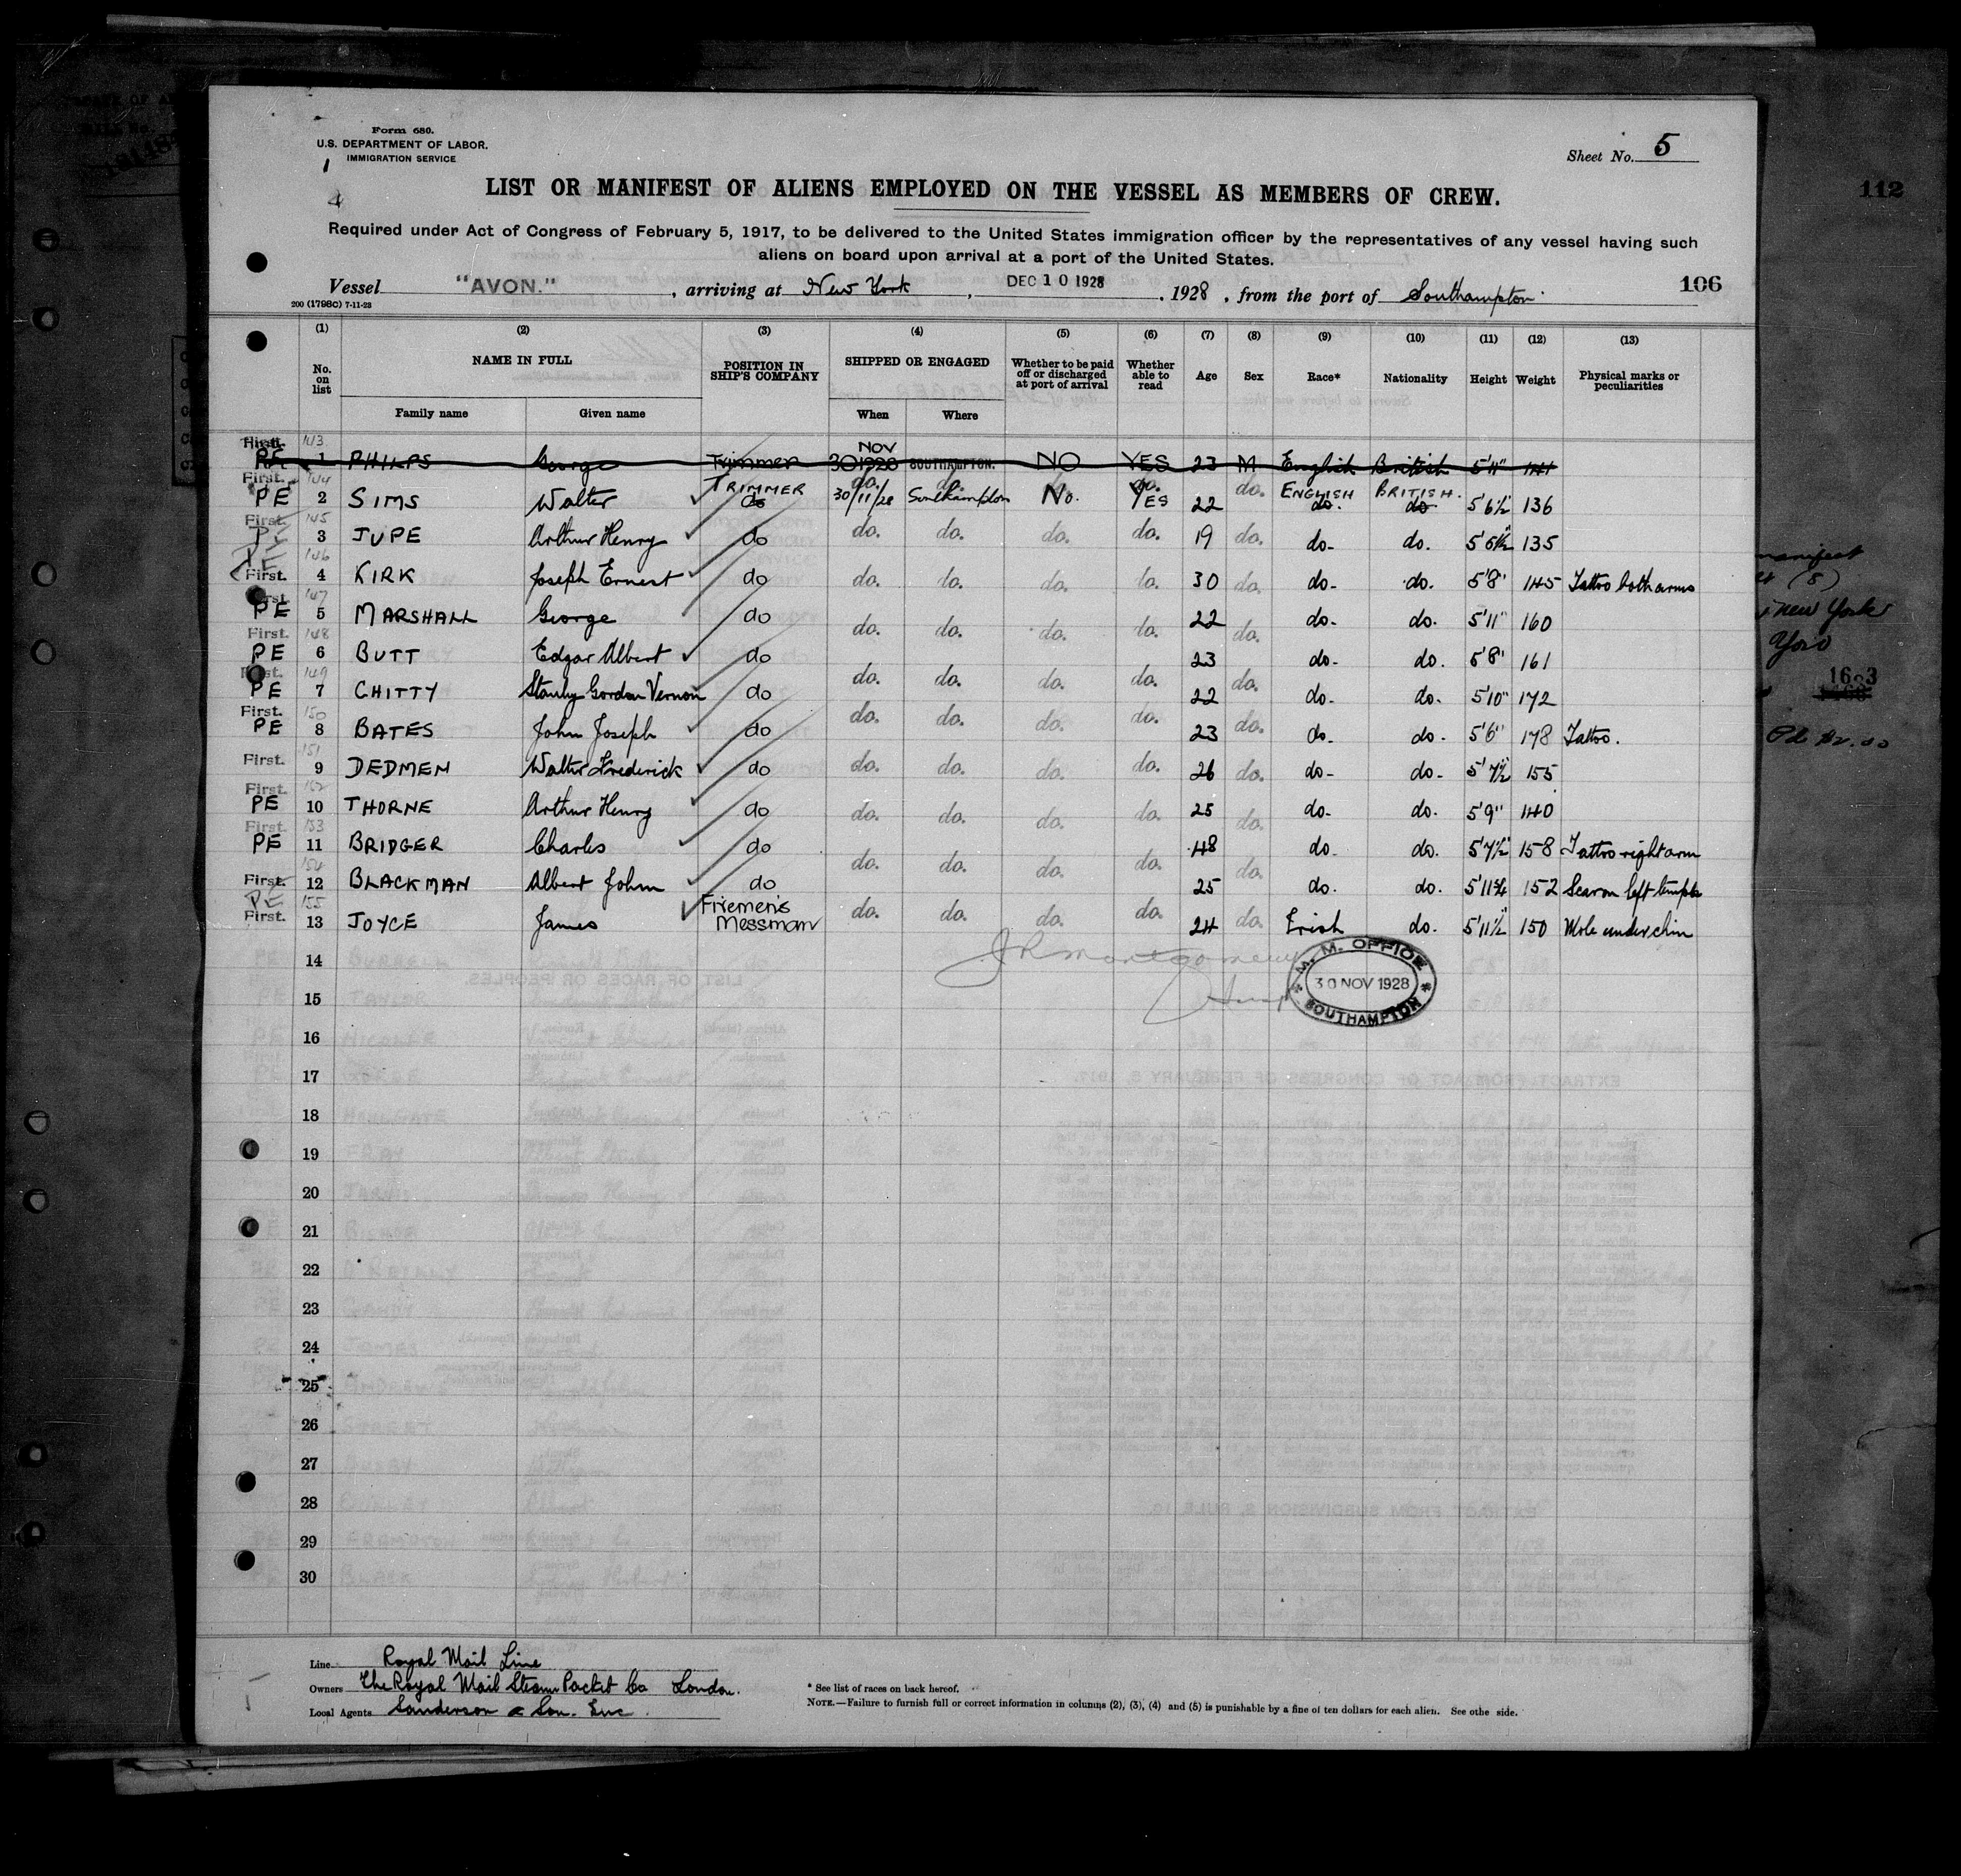 Form 680.
U.S. DEPARTMENT OF LABOR.
IMMIGRATION SERVICE
Sheet No. 5
112
LIST OR MANIFEST OF ALIENS EMPLOYED ON THE VESSEL AS MEMBERS OF CREW.
Required under Act of Congress of February 5, 1917, to be delivered to the United States immigration officer by the representatives of any vessel having such
aliens on board upon arrival at a port of the United States.
Vessel "AVON." , arriving at New York , DEC 10 1928 , 1928 , from the port of Southampton. 106
200 (1798C) 7-11-28
(1) (2) (3) (4) (5) (6) (7) (8) (9) (10) (11) (12) (13)
No. on list NAME IN FULL POSITION IN SHIP'S COMPANY SHIPPED OR ENGAGED Whether to be paid off or discharged at port of arrival Whether able to read Age Sex Race* Nationality Height Weight Physical marks or peculiarities
Family name Given name When Where
143
PE 1 PHILPS George Trimmer 30 NOV 1928 SOUTHAMPTON. NO YES 23 M English British 5'11" 141
First. 144
PE 2 SIMS Walter TRIMMER do 30/11/28 Southampton No. YES 22 do. ENGLISH do. BRITISH. do 5'6½ 136
First. 145
PE 3 JUPE Arthur Henry do do. do. do. do. 19 do. do- do. 5'6½ 135
PE 146
First. 4 KIRK Joseph Ernest do do. do. do. do. 30 do. do- do. 5'8" 145 Tattoo both arms
147
PE 5 MARSHALL George do do. do. do. do. 22 do. do- do. 5'11" 160
First. 148
PE 6 BUTT Edgar Albert do 23 do- do. 5'8" 161
First. 149
PE 7 CHITTY Stanley Gordon Vernon do do. do. do. do. 22 do. do- do. 5'10" 172
First. 150
PE 8 BATES John Joseph do do. do. do. do. 23 do. do- do. 5'6" 178 Tattoo.
151
First. 9 DEDMEN Walter Frederick do do. do. do. do. 26 do. do- do- 5'7½ 155
First. 152
PE 10 THORNE Arthur Henry do do. do. do. do. 25 do. do- do. 5'9" 140
First. 153
PE 11 BRIDGER Charles do 48 do- do. 5'7½ 158 Tattoo right arm
154
First. 12 BLACKMAN Albert John do do. do. do. do. 25 do. do. do. 5'11¾ 152 Scar on left temple
PE 155
First. 13 JOYCE James Firemen's Messman do. do. do. do. 24 do. Irish do. 5'11½" 150 Mole under chin
14
15
16
17
18
19
20
21
22
23
24
25
26
27
28
29
30
JR Montgomery
M. M. OFFICE
30 NOV 1928
SOUTHAMPTON
manifest
New York
1683
Line Royal Mail Line
Owners The Royal Mail Steam Packet Co London.
Local Agents Sanderson & Son. Inc.
* See list of races on back hereof.
NOTE.—Failure to furnish full or correct information in columns (2), (3), (4) and (5) is punishable by a fine of ten dollars for each alien. See othe side.